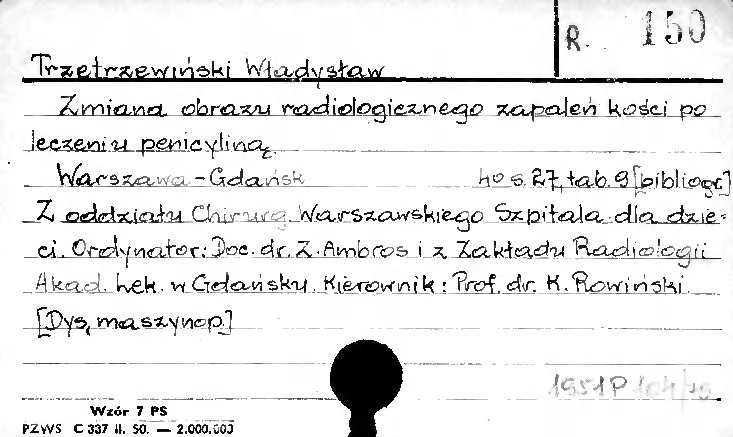 R. 150
Trzetrzewiński Władysław
Zmiana obrazu radiologicznego zapaleń kości po
leczeniu penicyliną.
Warszawa-Gdańsk s. 27, tab. 9 [bibliogr.]
Z oddziału Chirurg. Warszawskiego Szpitala dla dzie-
ci. Ordynator: Doc. dr. Z. Ambros i z Zakładu Radiologii
Akad. Lek. w Gdańsku. Kierownik: Prof. dr. K. Rowiński.
[Dys, maszynop.]
1951P
Wzór 7 PS
PZWS C 337 II. 50. — 2.000.000